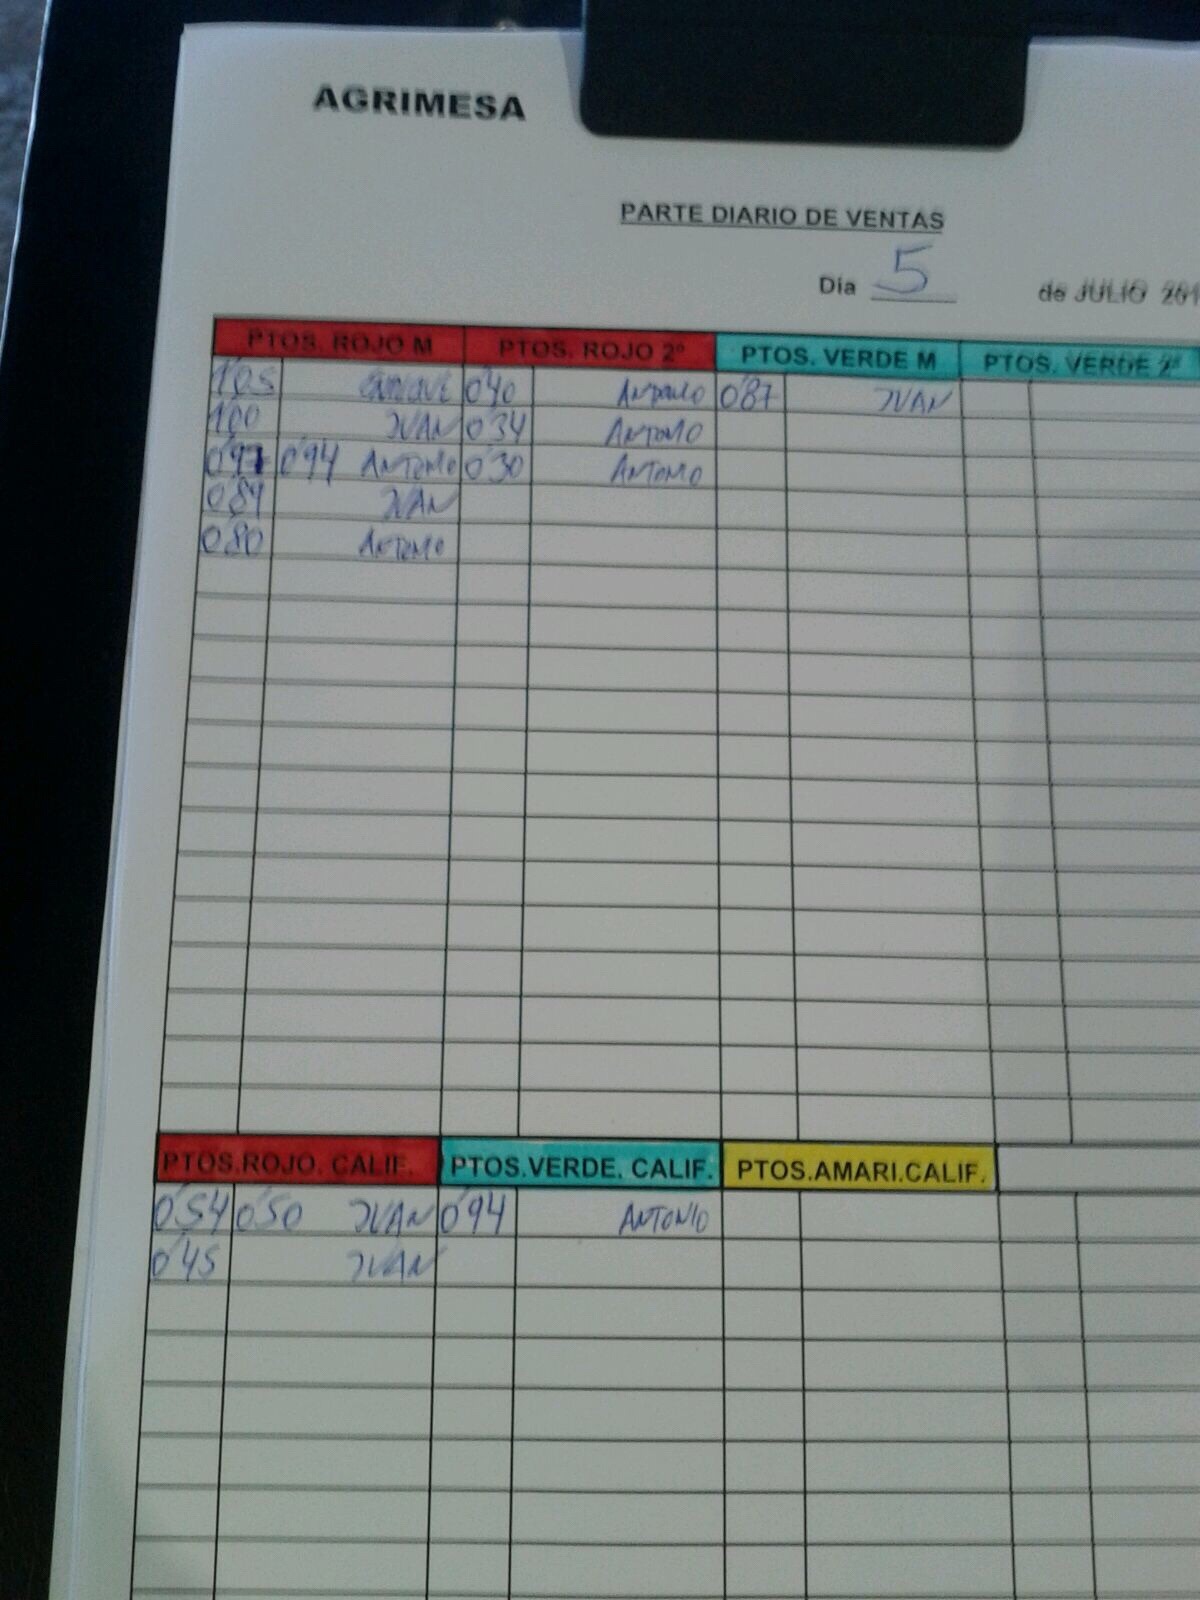 AGRIMESA
PARTE DIARIO DE VENTAS
Día 5 de JULIO 201
PTOS. ROJO M PTOS. ROJO 2º PTOS. VERDE M PTOS. VERDE 2ª
1'05 ENRIQUE 0'40 ANTONIO 0'87 JUAN
1'00 JUAN 0'34 ANTONIO
0'97 0'94 ANTONIO 0'30 ANTONIO
0'84 JUAN
0'80 ANTONIO
PTOS.ROJO. CALIF. PTOS.VERDE. CALIF. PTOS.AMARI.CALIF.
0'54 0'50 JUAN 0'94 ANTONIO
0'45 JUAN